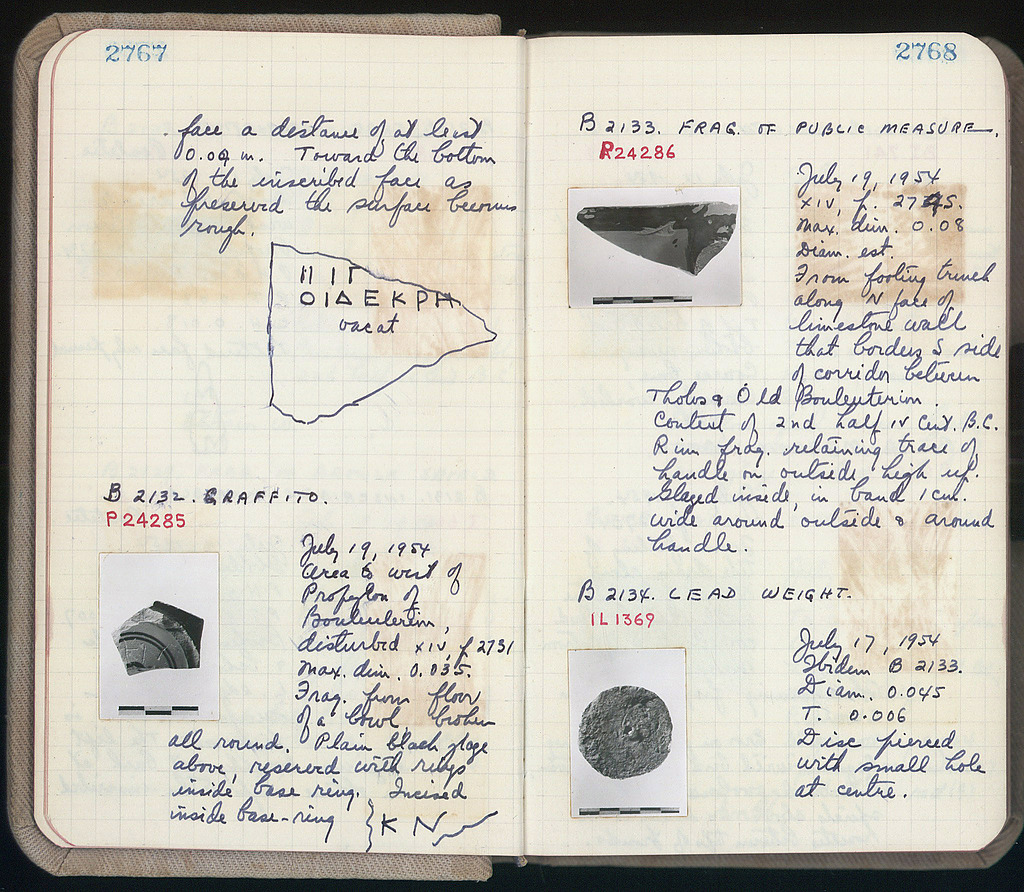 2767
face a distance of at least
0.04 m. Toward the bottom
of the inscribed face as
preserved the surface becomes
rough.
ΟΙΔΕΚΡΗ
vacat
B 2132. GRAFFITO.
P24285
July 19, 1954
Area to west of
Propylon of
Bouleuterion,
disturbed XIV, p. 2731
Max. dim. 0.035.
Frag. from floor
of a bowl, broken
all round. Plain black glaze
above, reserved with rings
inside base ring. Incised
inside base-ring K N
2768
B 2133. FRAG. OF PUBLIC MEASURE.
P24286
July 19, 1954
XIV, p.
Max. dim. 0.08
Diam. est.
From footing trench
along N face of
limestone wall
that borders S side
of corridor between
Tholos & Old Bouleuterion.
Context of 2nd half IV Cent. B.C.
Rim frag. retaining trace of
handle on outside, high up.
Glazed inside, in band 1 cm.
wide around outside & around
handle.
B 2134. LEAD WEIGHT.
IL1369
July 17, 1954
Ibidem B 2133.
Diam. 0.045
T. 0.006
Disc pierced
with small hole
at centre.